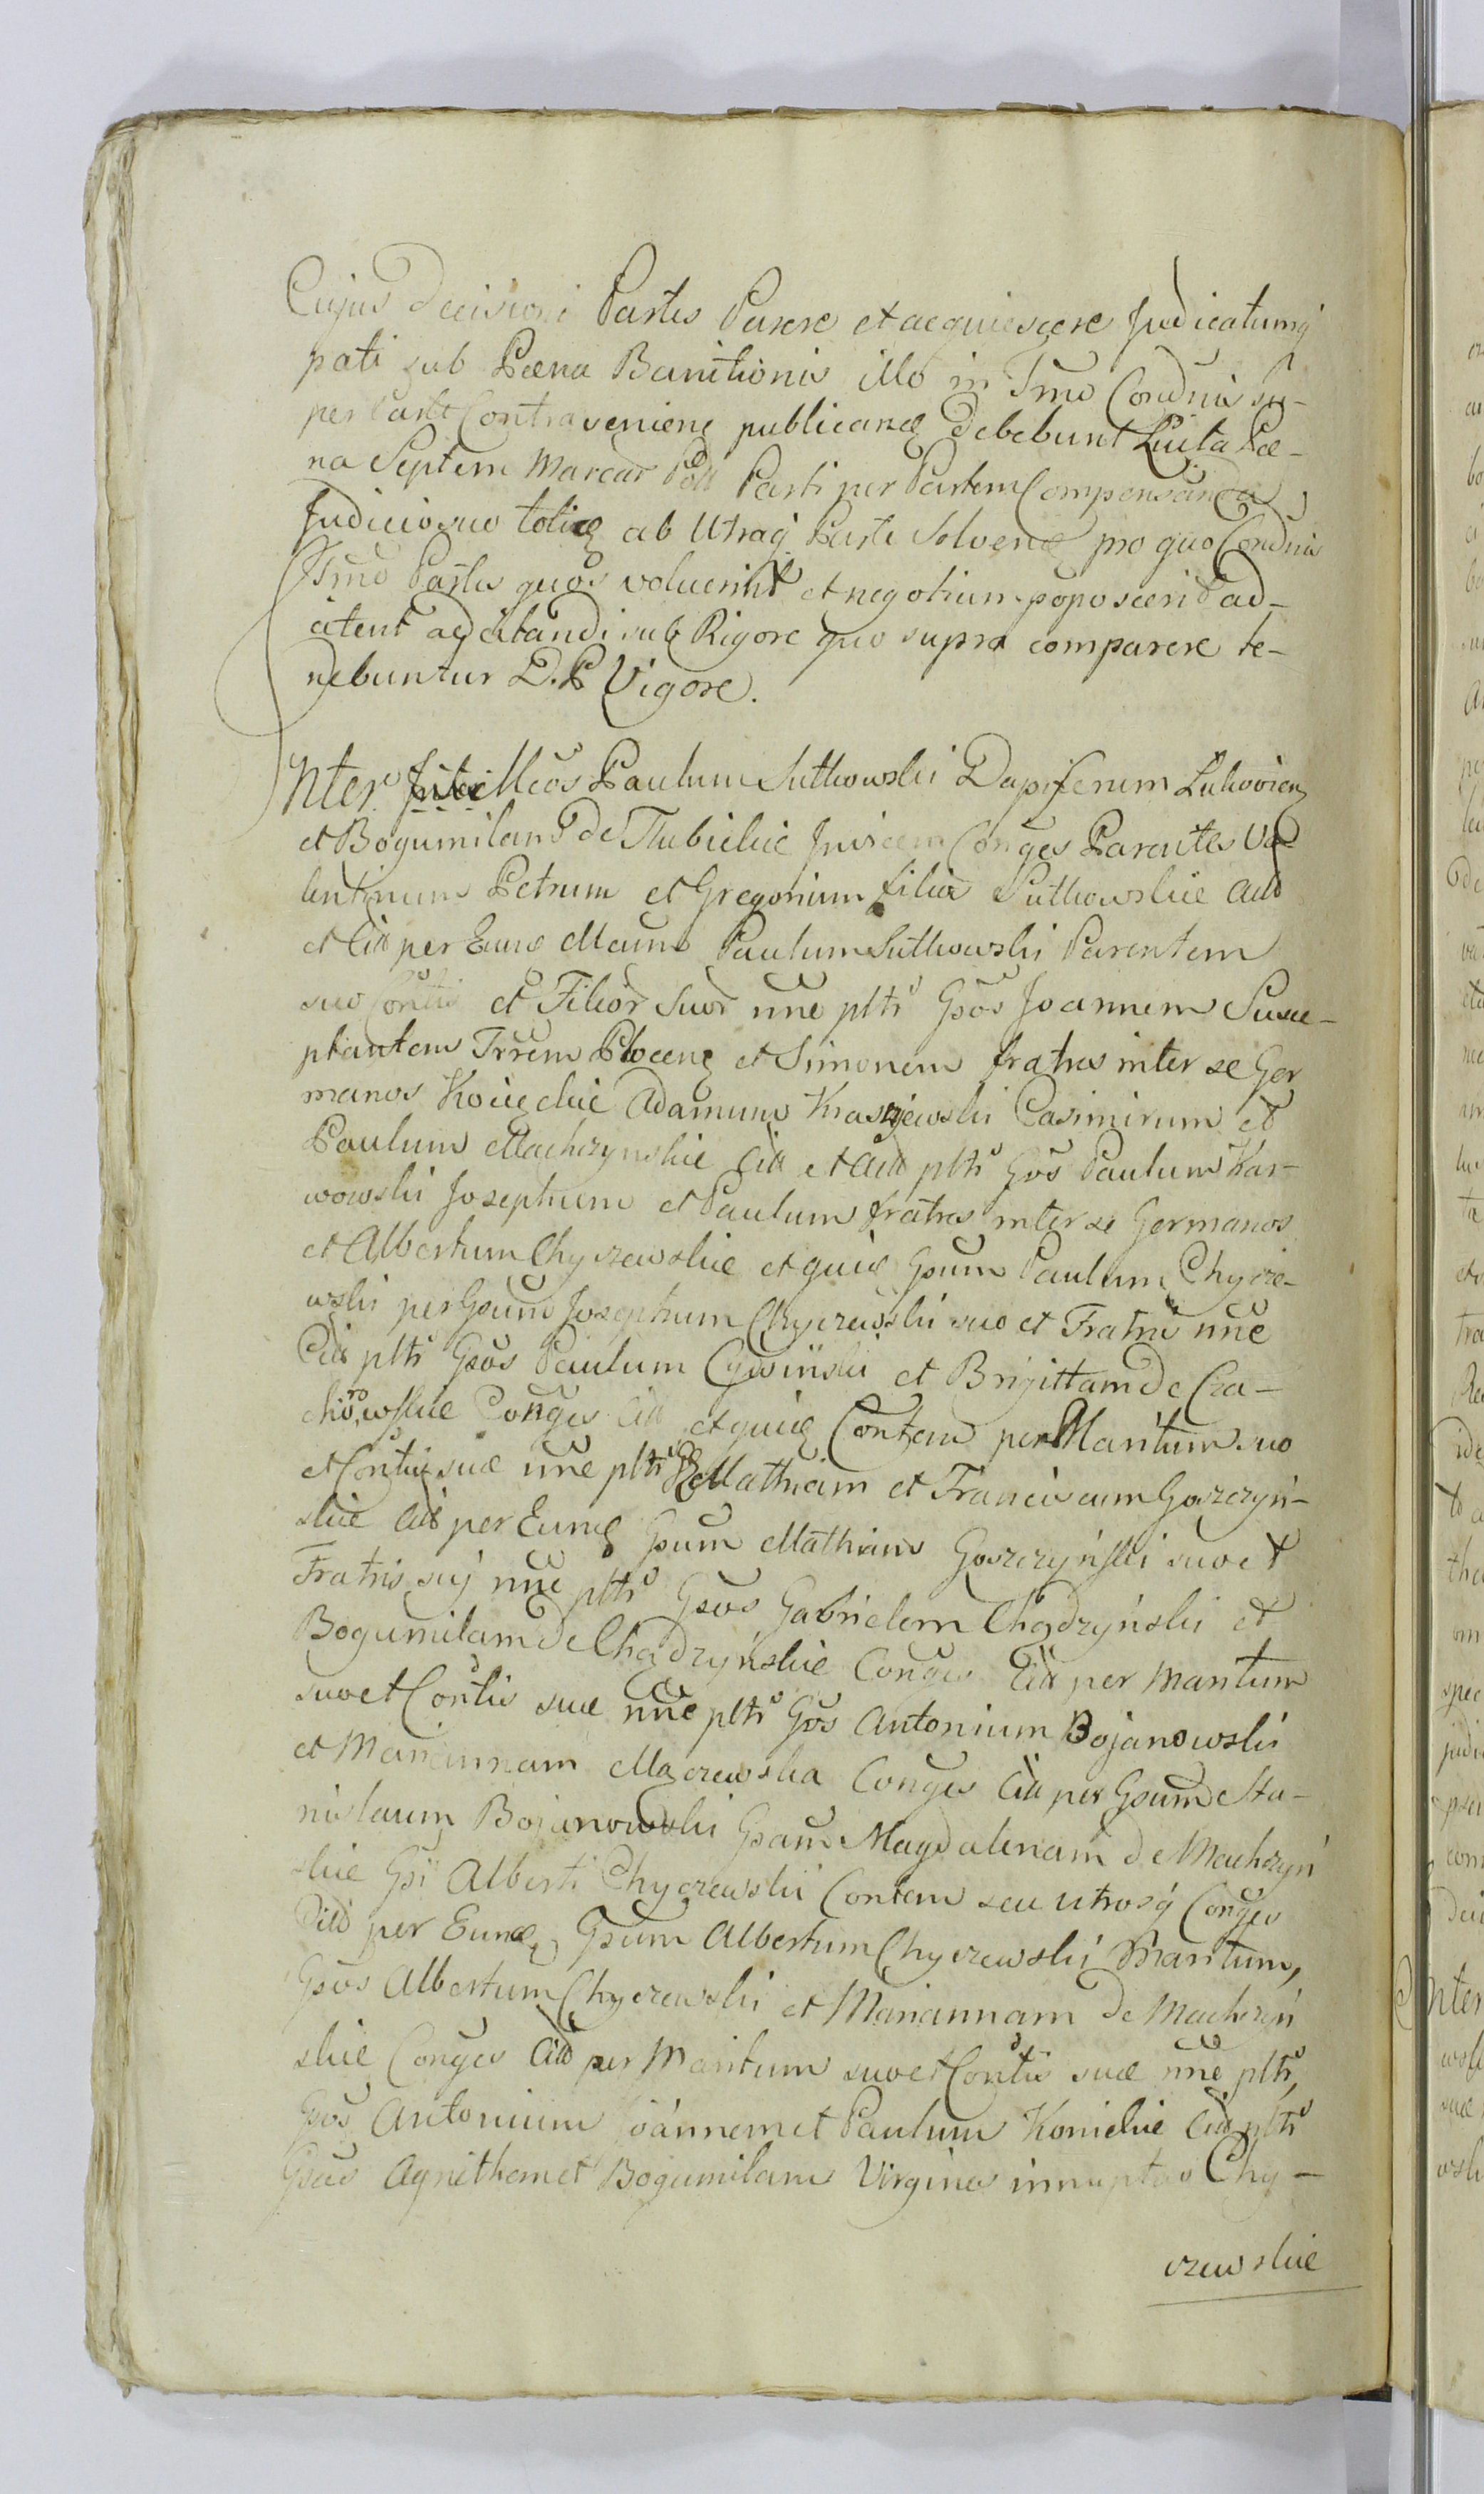 Cujus Decisioni Partes Parere et acquiescere Judicatumq
pati sub Pæna Banitionis illo in Tmo Condnis su-
per Parte Contraveniene publicanæ debebunt Luita Pæ-
na Septem Marcar Poll Parti per Partem Compensanda
Judicio suo toties ab Utraq Parte Solvenæ pro quo Condnis
Tmo Partes quos voluerint et negotium poposcerit ad-
citent adcitandi sub Rigore quo supra comparere te-
nebuntur D. P Vigore.
Inter Mcos Paulum Sutkowski Dapiferum Lukovien
et Bogumilam de Tlubickie Invicem Conges Parentes Va-
lentinum Petrum et Gregorium filios Sutkowskie Act
et Cit per Eune Mcum Paulum Sutkowski Parentem
suo Contis et Filior Suor nne pltr Gsos Joannem Susce-
ptantem Trrem Plocens et Simonem fratres inter se Ger
manos Koiechie Adamum Kraszewski Casimirum et
Paulum Machczynskie Cit et Act pltr Gsos Paulum Kar-
wowski Josephum et Paulum fratres inter se Germanos
et Albertum Chyczewskie et quie Gsum Paulum Chycze-
wski per Gsum Josephum Chyczewski suo et Fratris nne
Cit pltr Gsos Paulum Cywiński et Brigittam de Cza-
chorowskie Conges Cit et quie Contem per Maritum suo
et Contis suæ nne pltr Mathiam et Franciscum Goszczyń-
skie Cit per Eune Gsum Mathiam Goszczyński suo et
Fratris sui nne pltr Gsos Gabrielem Chądzyński et
Bogumilam de Chądzyńskie Conges Cit per Maritum
suo et Contis suæ nne pltr Gsos Antonium Bojanowski
et Mariannam Mączewska Conges Cit per Gsum Sta-
nislaum Bojanowski Gsam Magdalenam de Machczyń
skie Gsi Alberti Chyczewski Contem seu utrosq Conges
Cit per Eune Gsum Albertum Chyczewski Maritum,
Gsos Albertum Chyczewski et Mariannam de Machczyń
skie Conges Cit per Maritum suo et Contis suæ nne pltr,
Gsos Antonium Joannem et Paulum Konickie Cit pltr
Gsas Agnethem et Bogumilam Virgines innuptas Chy-
czewskie